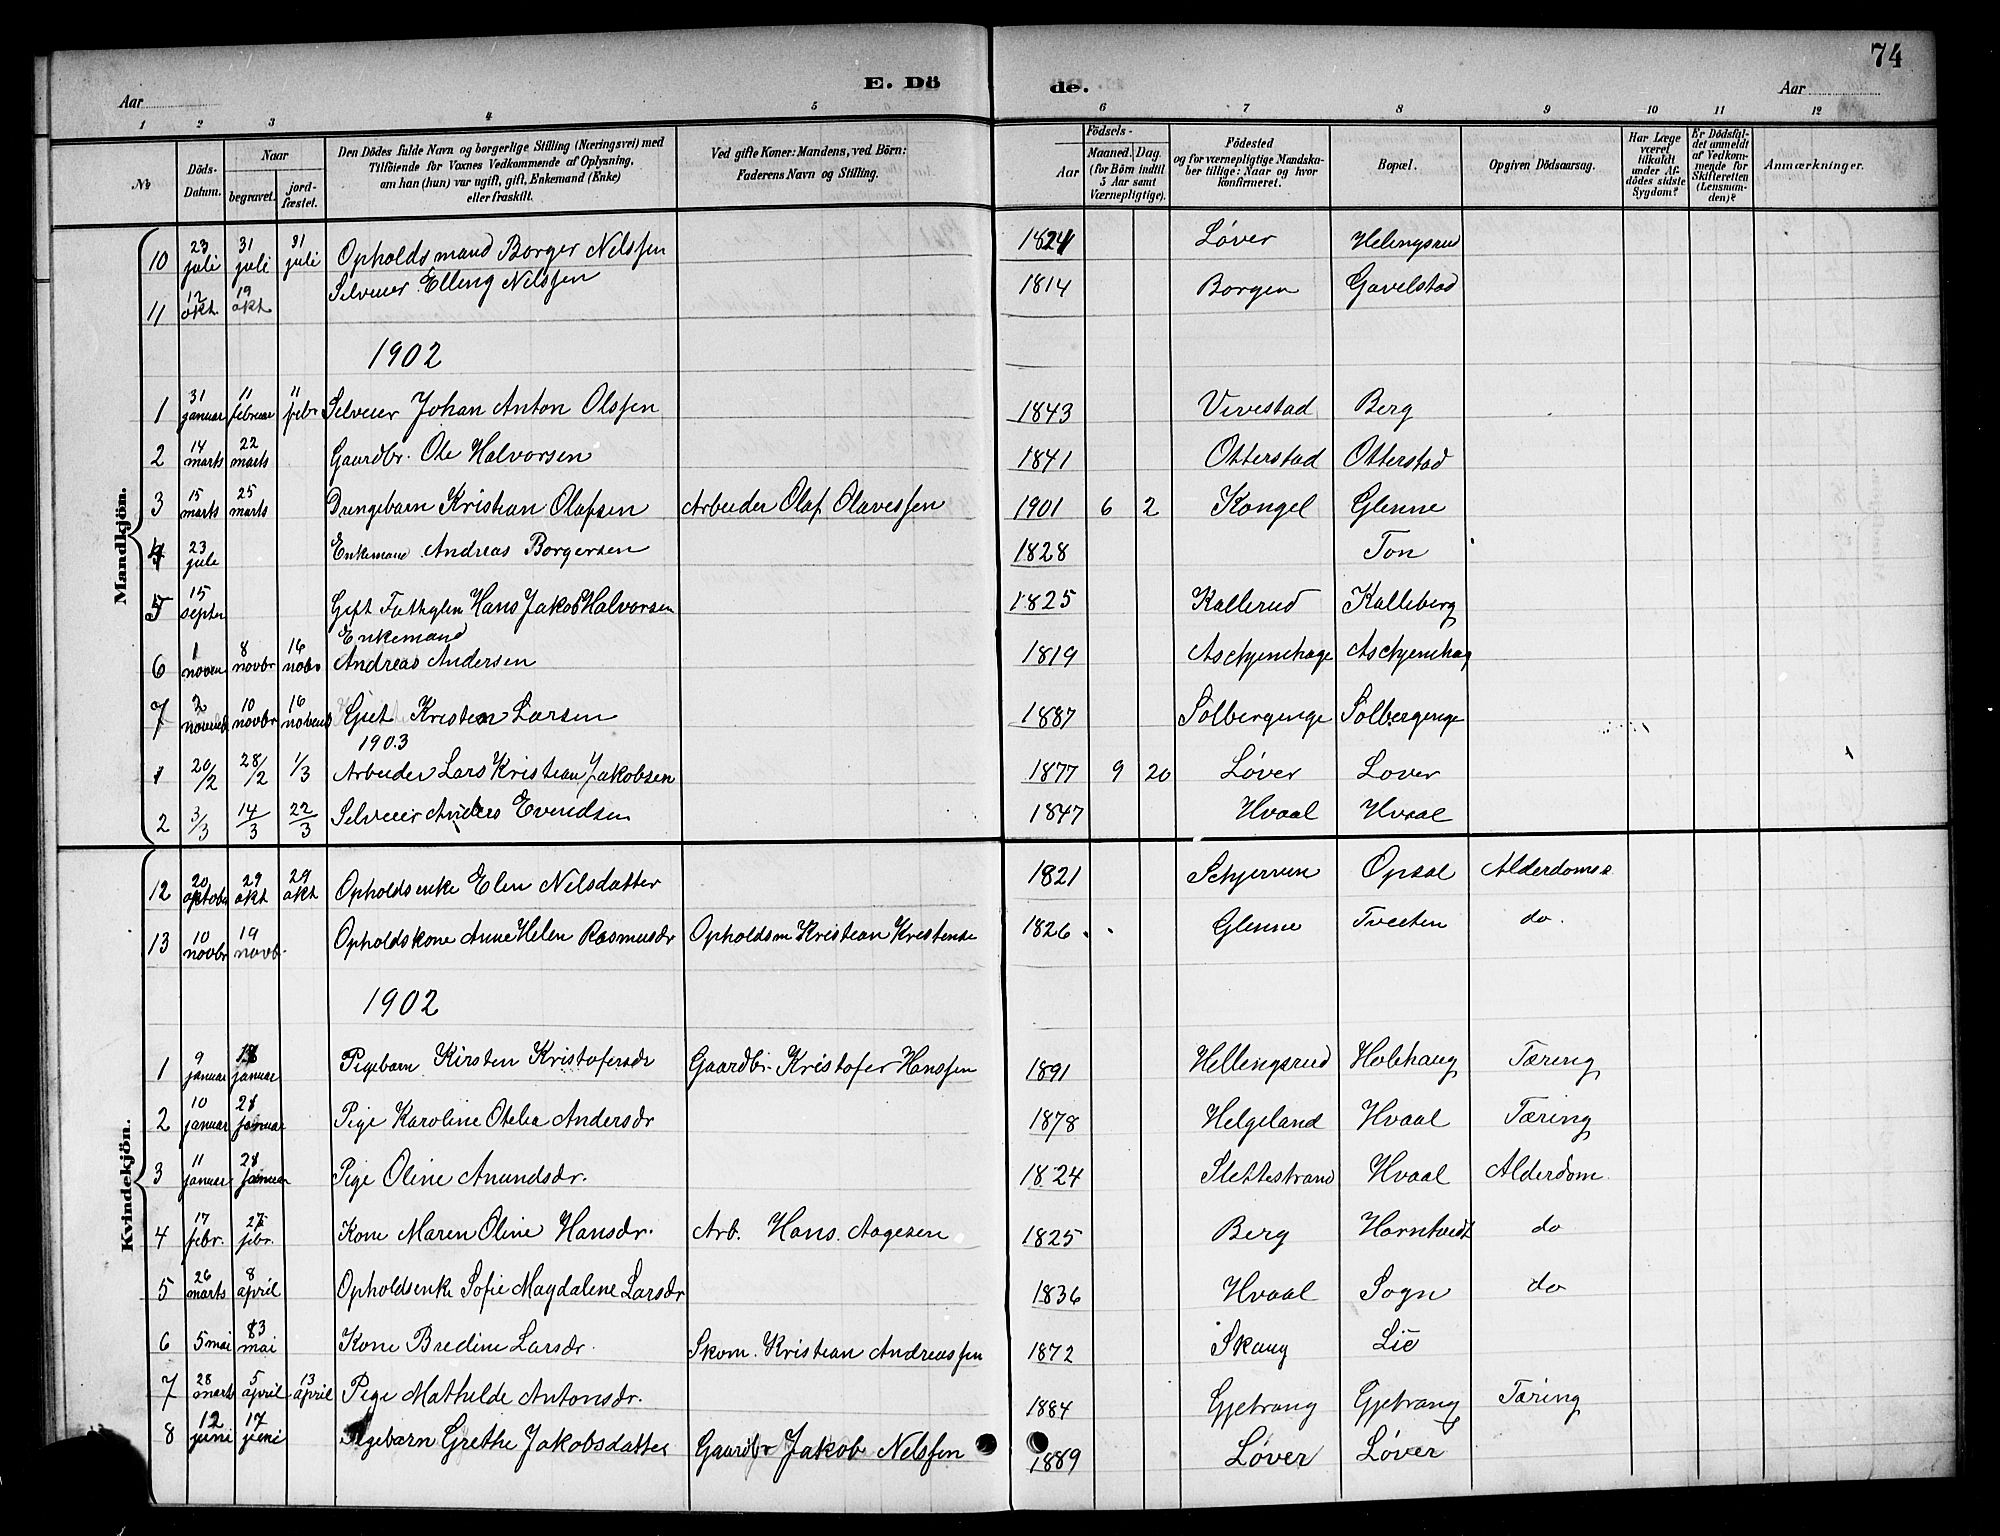 74
E. Dö de.
Aar Aar
1 2 3 4 5 6 7 8 9 10 11 12
№
Döds-Datum.
Naar
begravet.
jord-fæstet.
Den Dödes fulde Navn og borgerlige Stilling (Næringsvei) med
Tilföiende for Voxnes Vedkommende af Oplysning,
om han (hun) var ugift, gift, Enkemand (Enke)
eller fraskilt.
Ved gifte Koner: Mandens, ved Börn:
Faderens Navn og Stilling.
Födsels-
Aar
Maaned. Dag
(for Börn indtil
5 Aar samt
Værnepligtige).
Födested
og for værnepligtige Mandska-
ber tillige: Naar og hvor
konfirmeret.
Bopæl.
Opgiven Dödsaarsag.
Har Læge
været
tilkaldt
under Af-
dödes sidste
Sygdom?
Er Dödsfal-
det anmeldt
af Vedkom-
mende for
Skifteretten
(Lensman-
den)?
Anmærkninger.
Mandkjön.
10 23 juli 31 juli 31 juli Opholdsmand Borger Nilssen 1824 Løver Helingsrud
11 12 okt. 19 okt Selveier Elling Nilssen 1814 Borgen Gavelstad
1902
1 31 januar 11 februar 11 febr Selveier Johan Anton Olssen 1843 Vivestad Berg
2 14 marts 22 marts Gaardbr. Ole Halvorsen 1841 Otterstad Otterstad
3 15 marts 25 marts Drengebarn Kristian Olafsen Arbeider Olaf Olavessen 1901 6 2 Kongel Glenne
4 23 jule Enkemand Andreas Borgersen 1828 Ton
5 15 septer Gift Fattiglem Hans Jakob Halvorsen 1825 Kallerud Kalleberg
Enkemand
6 1 noven 8 novbr 16 nobr Andreas Andersen 1819 Aschjemhage Aschjemhag
7 2 10 novbr 16 Gift Kristen Larsen 1887 Solbergenge Solbergenge
1903
1 20/2 28/2 1/3 Arbeider Lars Kristian Jakobsen 1877 9 20 Løver Lover
2 3/3 14/3 22/3 Selveier Anders Evendsen 1847 Hvaal Hvaal
Kvindekjön.
12 20 oktobr 29 okt 29 okt Opholdsenke Elen Nilsdatter 1821 Schjerven Opsal Alderdoms
13 10 novbr 19 novb. Opholdskone Anne Helen Rasmusdr Opholdsm Kristian Kristense 1826 Glenne Tveeten do.
1902
1 9 januar januar Pigebarn Kirsten Kristofersdr Gaardbr. Kristofer Hanssen 1891 Hellingsrud Holthaug Tæring
2 10 januar 21 januar Pige Karoline Otelia Andersdr 1878 Helgeland Hvaal Tæring
3 11 januar 21 januar Pige Oline Amundsdr. 1824 Slettestrand Hvaal Alderdom
4 17 febr. 27 febr. Kone Maren Oline Hansdr. Arb. Hans. Aagesen 1825 Berg Horntvedt do
5 26 marts 8 april Opholdsenke Sofie Magdalene Larsdr 1836 Hvaal Sogn do
6 5 mai 13 mai Kone Bredine Larsdr. Skom. Kristian Andreassen 1872 Skaug Lie
7 28 marts 5 april 13 april Pige Mathilde Antonsdr. 1884 Gjetrang Gjetrang Tæring
8 12 juni 17 juni Pigebarn Grethe Jakobsdatter Gaardbr Jakob Nilssen 1889 Løver Løver